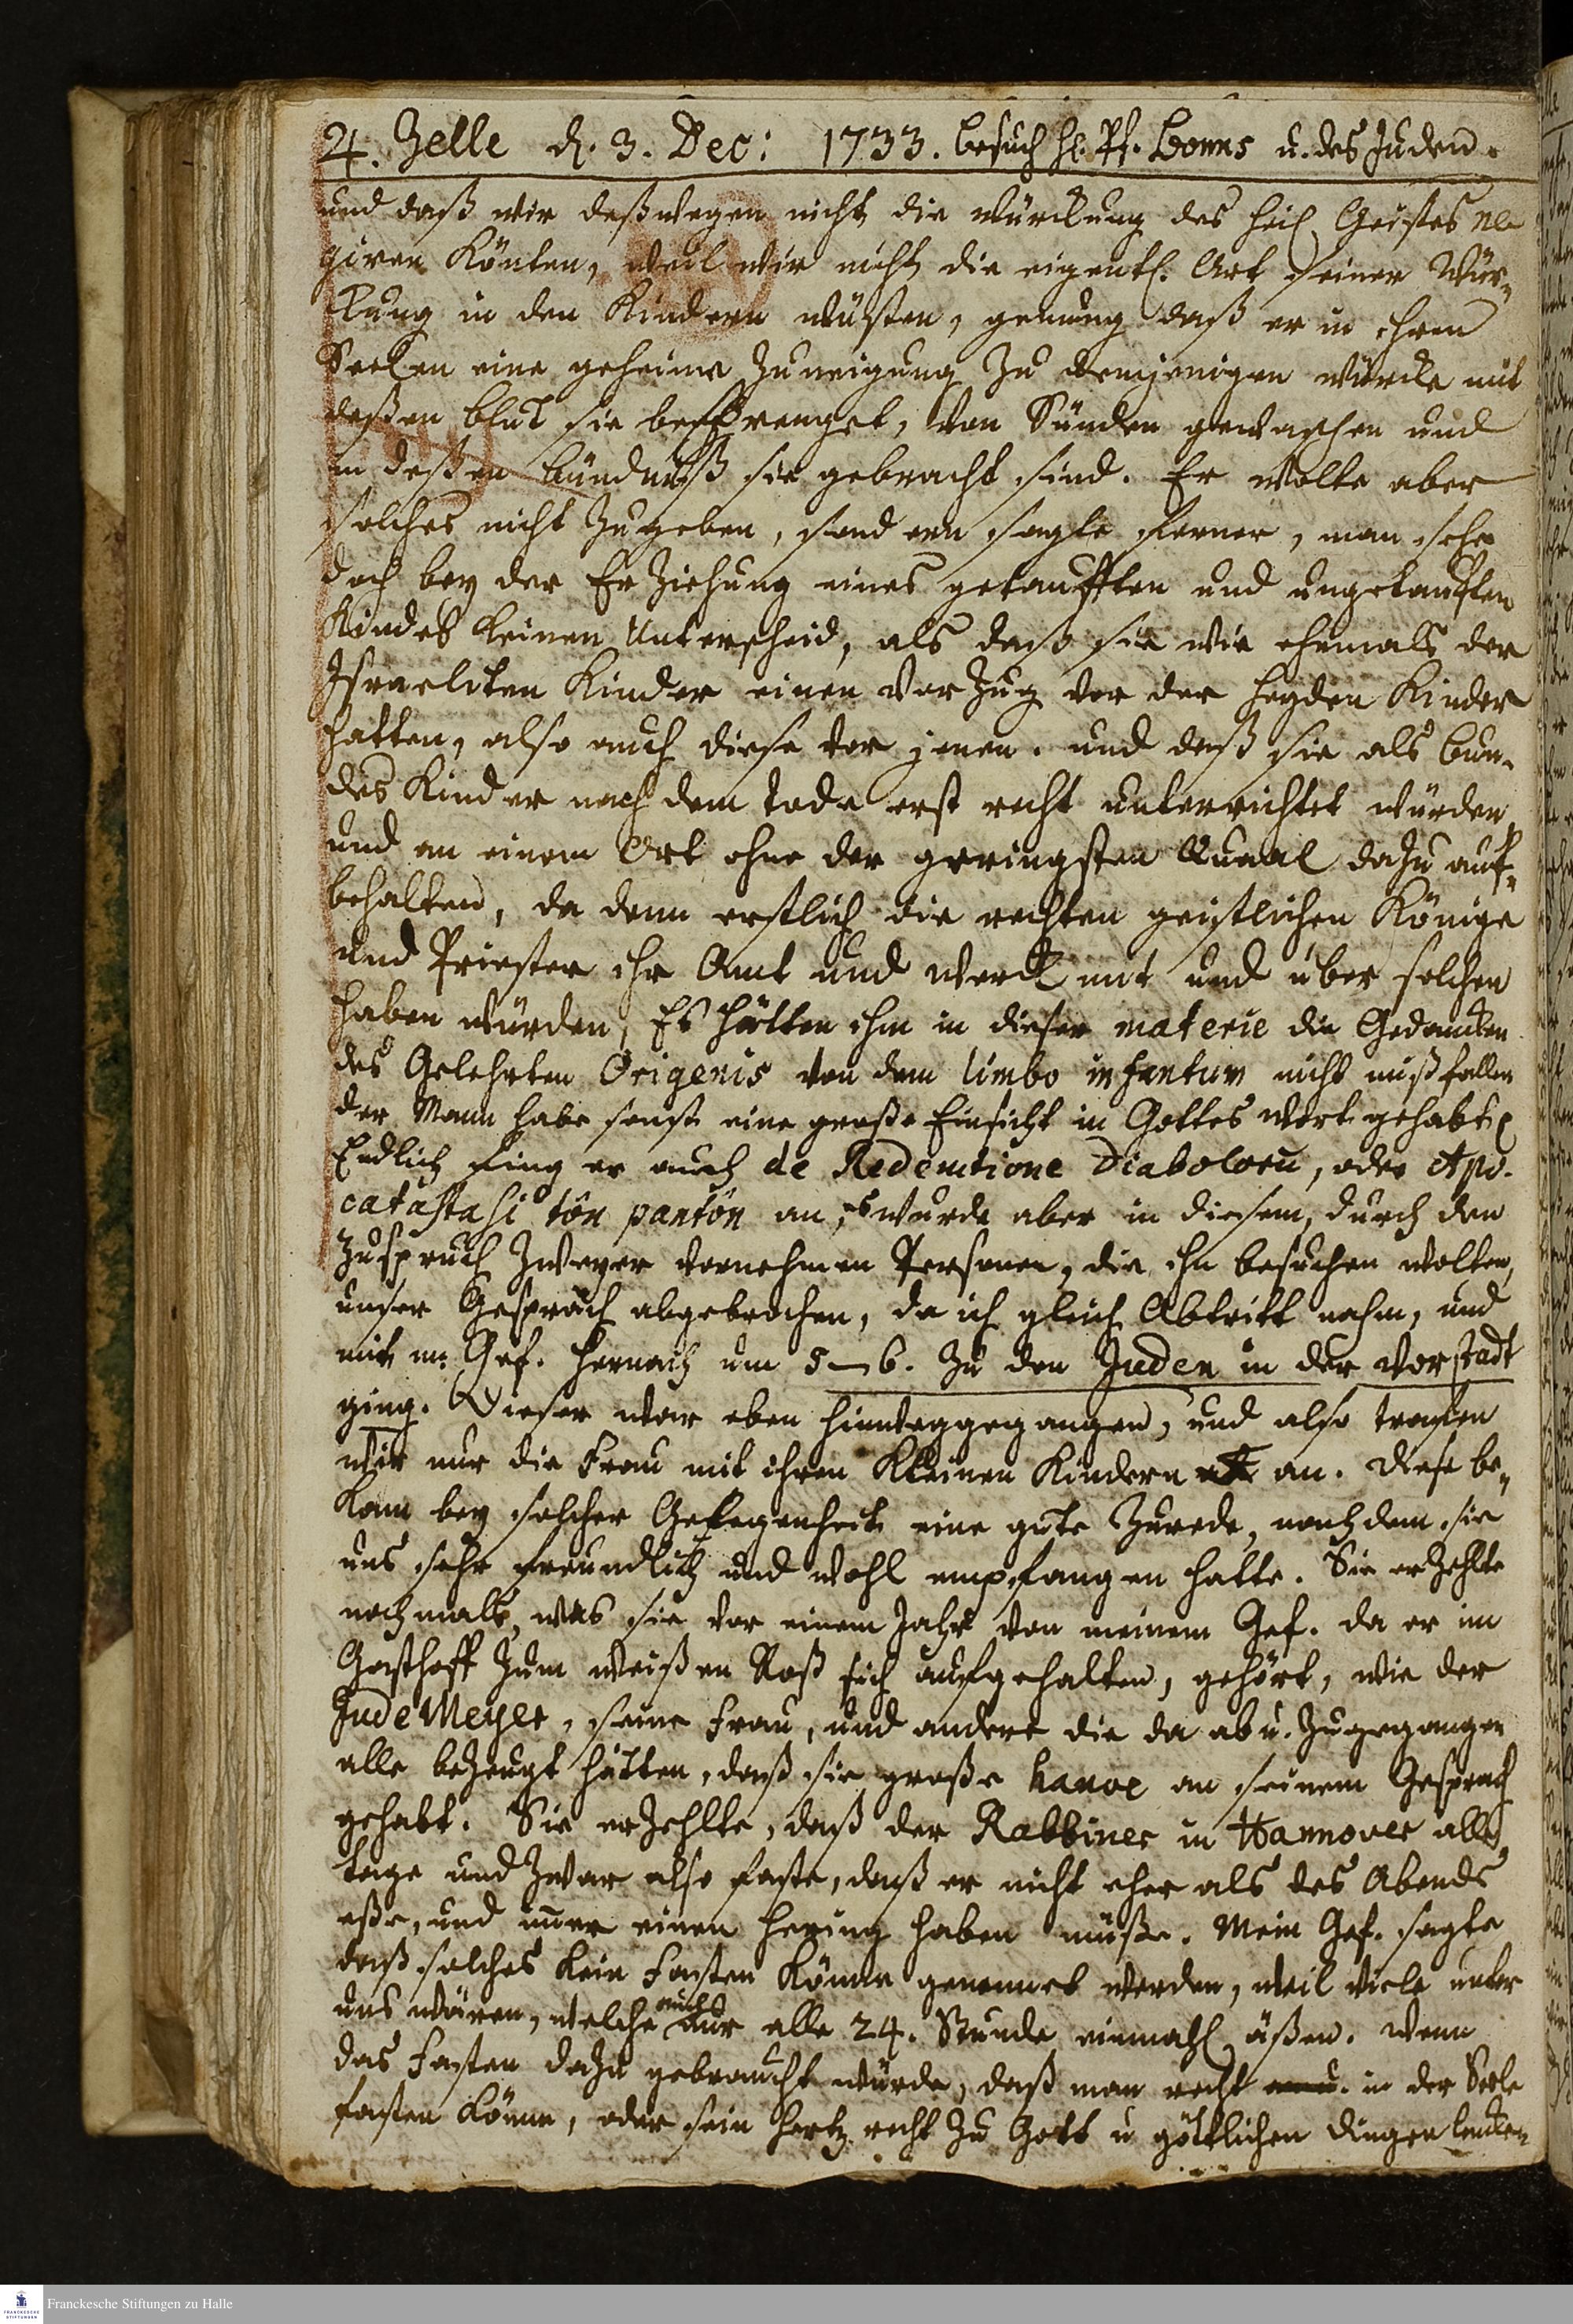 24. Zelle d. 3. Dec: 1733. besuch H. Pf. Bonns u. des Juden.
und daß wir deßwegen nicht die würckung des Heil. Geistes ne
giren könten, weil wir nicht die eigentl. Art seiner Wür-
kung in den Kindern wüsten, genung daß er in ihren
Seelen eine geheime Zuneigung zu demjenigen würcke mit
deßen blut sie besprenget, von Sünden gewaschen und
in deßen bündniß sie gebracht sind. Er wolte aber
solches nicht zugeben, sondern sagte ferner, man sehe
doch bey der Erziehung eines getaufften und ungetaufften
Kindes keinen Unterscheid, als daß sie wie ehemals der
Israeliten Kinder einen Vorzug vor der Heyden Kinder
hatten, also auch diese vor jenen. und daß sie als bun-
des Kinder nach dem tode erst recht unterrichtet würden
und an einem Ort ohne der geringsten Quaal dazu auf-
behalten, da denn erstlich die rechten geistlichen Könige
und Priester ihr Amt und werck mit und über solchen
haben würden, Es hätten ihm in dieser materie die Gedancken
des Gelehrten Origenis von dem limbo infantum nicht mißfallen
der Mann habe sonst eine große Einsicht in Gottes wort gehabt
Endlich fing er auch de Redemtione Diaboloru, oder Apo-
catastasi tôn pantôn an, es wurde aber in diesem, durch den
Zuspruch zweyer vornehmen Personen, die ihn besuchen wolten,
unser Gespräch abgebrochen, da ich gleich Abtritt nahm, und
mit m. Gef. hernach um 5–6. zu den Juden in der Vorstadt
ging. Dieser war eben hinweggegangen, und also trafen
wir nur die Frau mit ihren kleinen Kindern an. Diese be-
kam bey solcher Gelegenheit eine gute Zurede, nachdem sie
uns sehr freundlich und wohl empfangen hatte. Sie erzehlte
nochmals, was sie vor einem Jahr von meinem Gef. da er im
Gasthoff zum weißen Roß sich aufgehalten, gehört, wie der
Jude Meyer, seine Frau, und andere die da ab u. zugegangen
alle bezeugt hätten, daß sie große hanoe an seinem Gespräch
gehabt. Sie erzehlte, daß der Rabbiner in Hannover alle
tage und zwar also faste, daß er nicht eher als des Abends
eße, und immer einen Hering haben müße. Mein Gef. sagte
daß solches kein Fasten könne genennet werden, weil viele unter
uns wären, welche auch nur alle 24. Stunde einmahl äßen. Wenn
das Fasten dazu gebraucht würde, daß man recht in der Seele
fasten könne, oder sein Hertz recht zu Gott u. göttlichen dingen lencken
Franckesche Stiftungen zu Halle